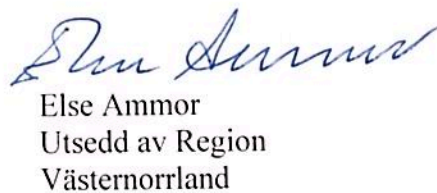 Else Ammor
Else Ammor
Utsedd av Region
Västernorrland